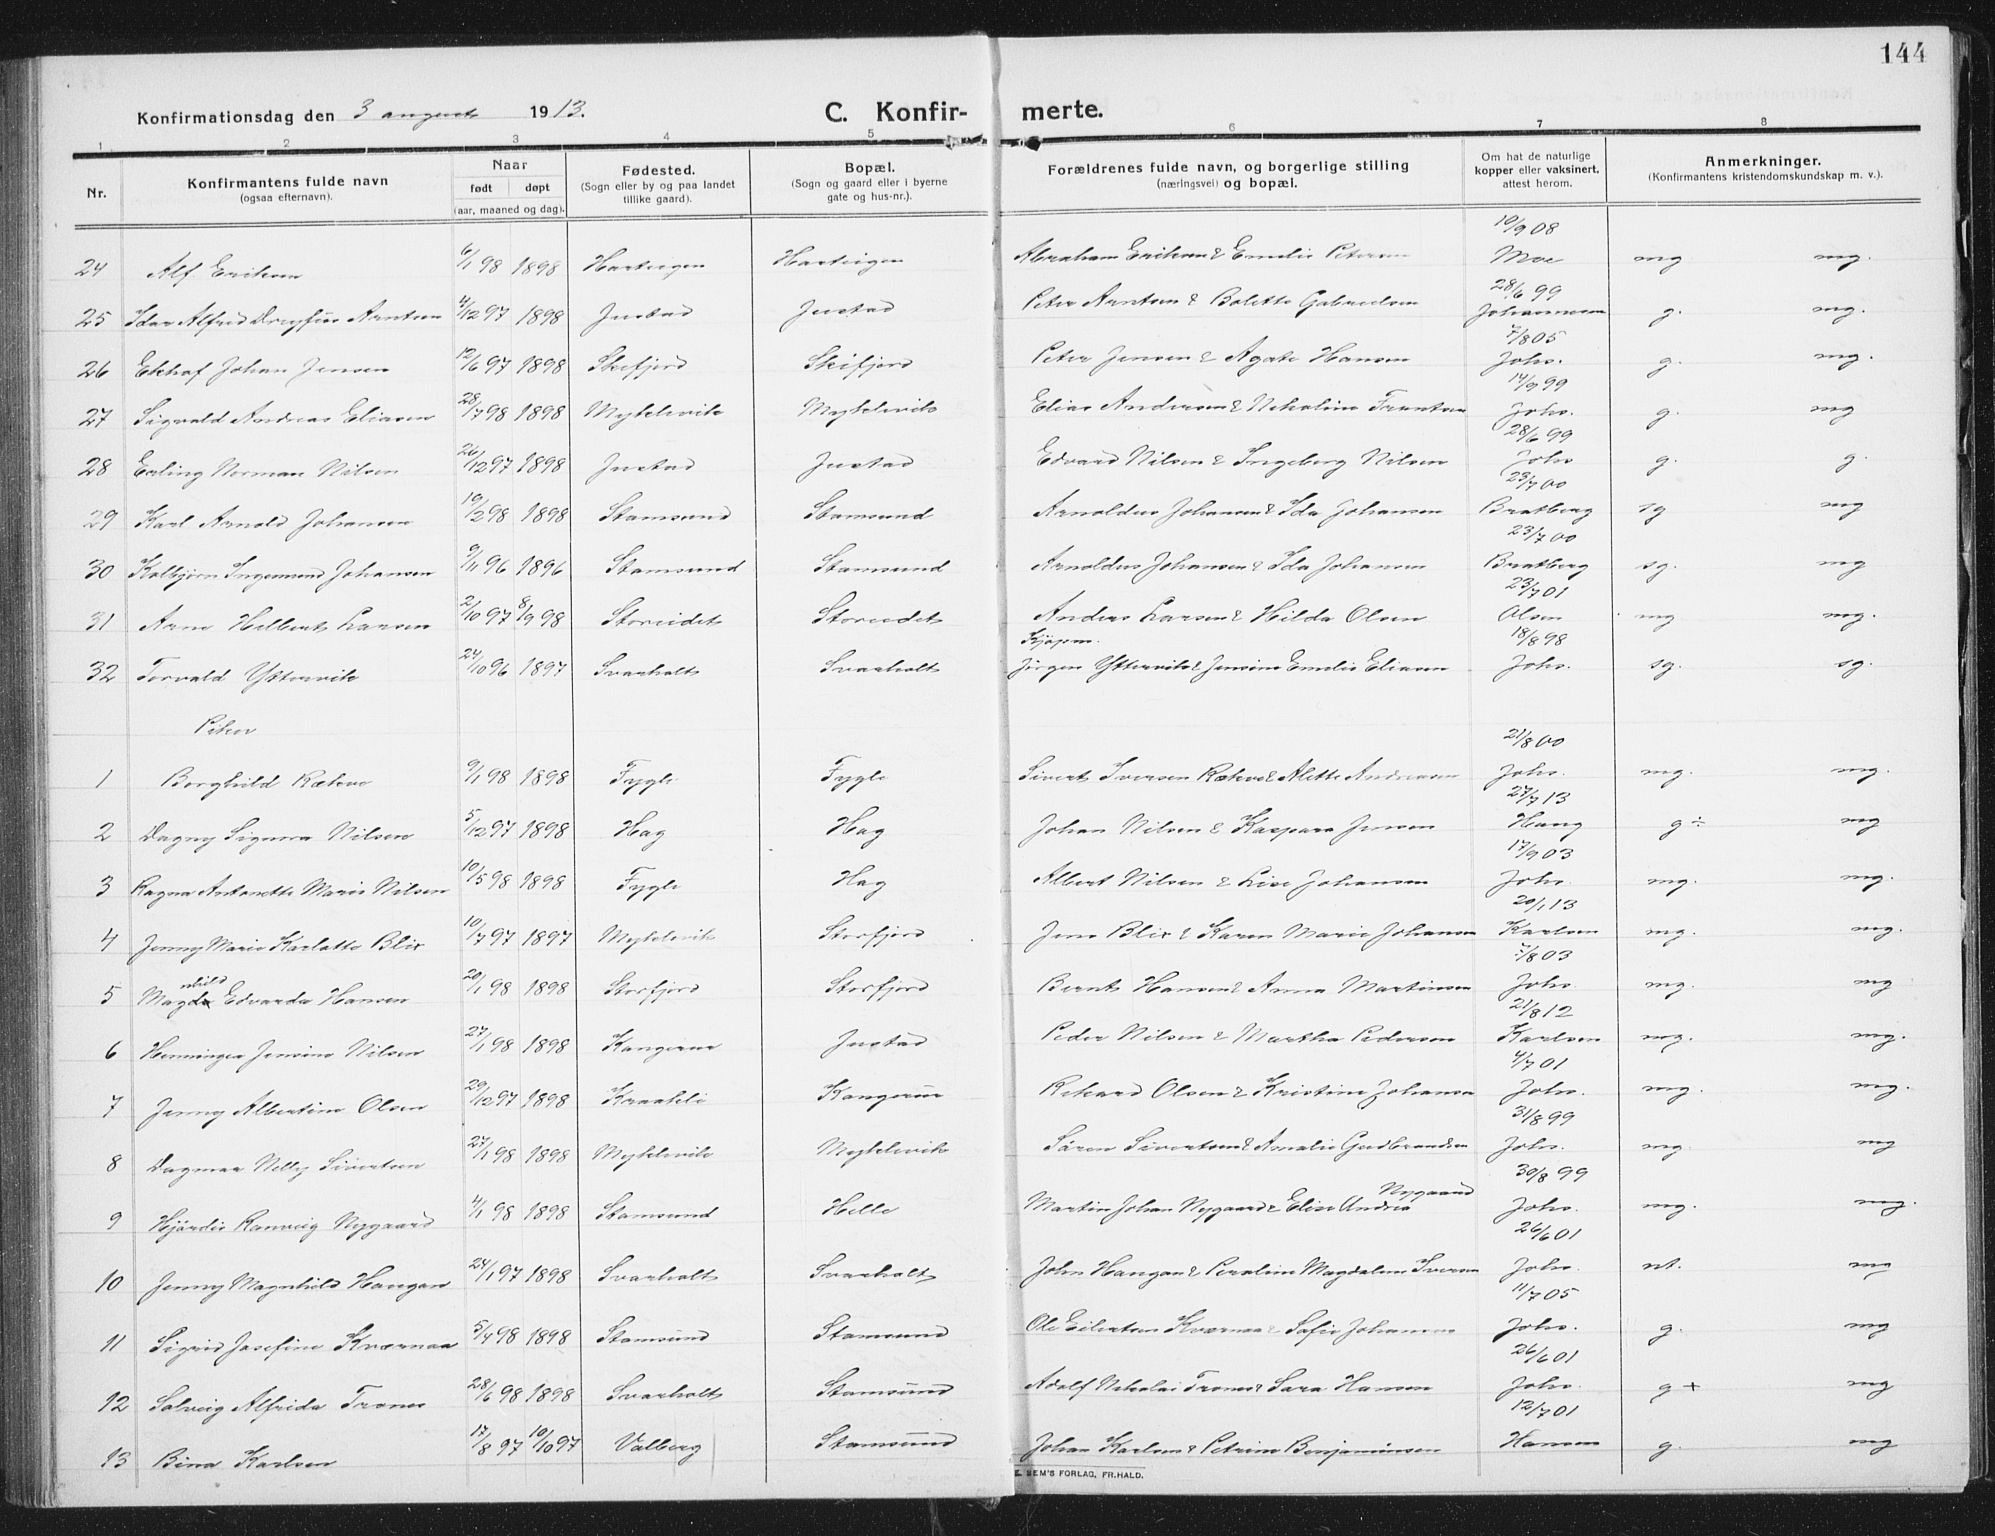 144
Konfirmationsdag den 3 august 1913.
C. Konfirmerte.
1 2 3 4 5 6 7 8
Nr. Konfirmantens fulde navn (ogsaa efternavn). Naar født døpt (aar, maaned og dag). Fødested. (Sogn eller by og paa landet tillike gaard). Bopæl. (Sogn og gaard eller i byerne gate og hus-nr.). Forældrenes fulde navn, og borgerlige stilling (næringsvei) og bopæl. Om hat de naturlige kopper eller vaksinert, attest herom. Anmerkninger. (Konfirmantens kristendomskundskap m. v.).
24 Alf Eriksen 6/1 98 1898 Hartvigen Hartvigen Abraham Eriksen & Emelie Petersen 10/9 08 Moe mg mg.
25 Idar Alfred Dreyfus Arntsen 4/12 97 1898 Justad Justad Peter Arntsen & Bolette Gabrielsen 28/6 99 Johannesen g. mg.
26 Ekhof Johan Jensen 12/6 97 1898 Skifjord Skifjord Peter Jensen & Agate Hansen 7/8 05 Johs. g. mg.
27 Sigvald Andreas Eliasen 28/7 98 1898 Myklevik Myklevik Elias Andersen & Nikoline Frantsen 14/9 99 Johs. g. mg
28 Erling Norman Nilsen 26/12 97 1898 Justad Justad Edvard Nilsen & Ingeberg Nilsen 28/6 99 Johs g. g.
29 Karl Arnold Johansen 19/2 98 1898 Stamsund Stamsund Arnoldus Johansen & Ida Johansen 23/7 00 Bratberg sg mg
30 Kolbjørn Ingemund Johansen 9/11 96 1896 Stamsund Stamsund Arnoldus Johansen & Ida Johansen 23/7 00 Bratberg sg. mg
31 Arne Helbert Larsen 2/10 97 8/9 98 Storeidet Storeidet Anders Larsen & Hilda Olsen 23/7 01 Olsen mg mg.
32 Torvald Yttervik 24/10 96 1897 Svarholt Svarholt Kjøpm. Jørgen Yttervik & Jensine Emelie Eliasen 18/8 98 Johs. sg. sg.
Piker
1 Borghild Rækve 9/1 98 1898 Fygle Fygle Sivert Iversen Rækve & Alette Andreasen 21/8 00 Johs. mg. mg.
2 Dagny Signora Nilsen 5/12 97 1898 Hag Hag Johan Nilsen & Kaspara Jensen 27/7 13 Haug g÷ mg
3 Ragna Antonette Marie Nilsen 10/5 98 1898 Fygle Hag Albert Nilsen & Lise Johansen 17/9 03 Johs. mg. mg.
4 Jenny Marie Karlotte Blix 10/7 97 1897 Myklevik Storfjord Jens Blix & Karen Marie Johansen 20/1 13 Karlsen mg. mg.
5 Magnhild Edvarda Hansen 20/1 98 1898 Storfjord Storfjord Bernt Hansen & Anna Martinsen 7/8 03 Johs mg. mg
6 Henningea Jensine Nilsen 27/1 98 1898 Kangerur Justad Peder Nilsen & Martha Pedersen 21/8 12 Karlsen mg. mg.
7 Jenny Albertine Olsen 29/12 97 1898 Kraakli Kangerur Rikard Olsen & Kristine Johansen 4/7 01 Johs. mg. mg.
8 Dagmar Nelly Sivertsen 27/1 98 1898 Myklevik Myklevik Søren Sivertsen & Amalie Gudbrandsen 31/8 99 Johs. mg. mg
9 Hjørdis Ranveig Nygaard 4/1 98 1898 Stamsund Helle Martin Johan Nygaard & Elise Andrea Nygaard 30/8 99 Johs. mg. mg.
10 Jenny Magnhild Haugan 24/1 97 1898 Svarholt Svarholt John Haugan & Peroline Magdalene Iversen 26/6 01 Johs. nt. mg
11 Sigrid Josefine Kværnaa 5/4 98 1898 Stamsund Stamsund Ole Eilertsen Kværnaa & Sofie Johansen 11/7 05 Johs. g. mg
12 Solveig Alfrida Trones 28/6 98 1898 Svarholt Stamsund Adolf Nikolai Trones & Sara Hansen 26/6 01 Johs. g+ mg
13 Bina Karlsen 17/8 97 10/10 97 Valberg Stamsund Johan Karlsen & Petrine Benjaminsen 12/7 01 Hansen g. mg
E. SEM'S FORLAG, FR.HALD.